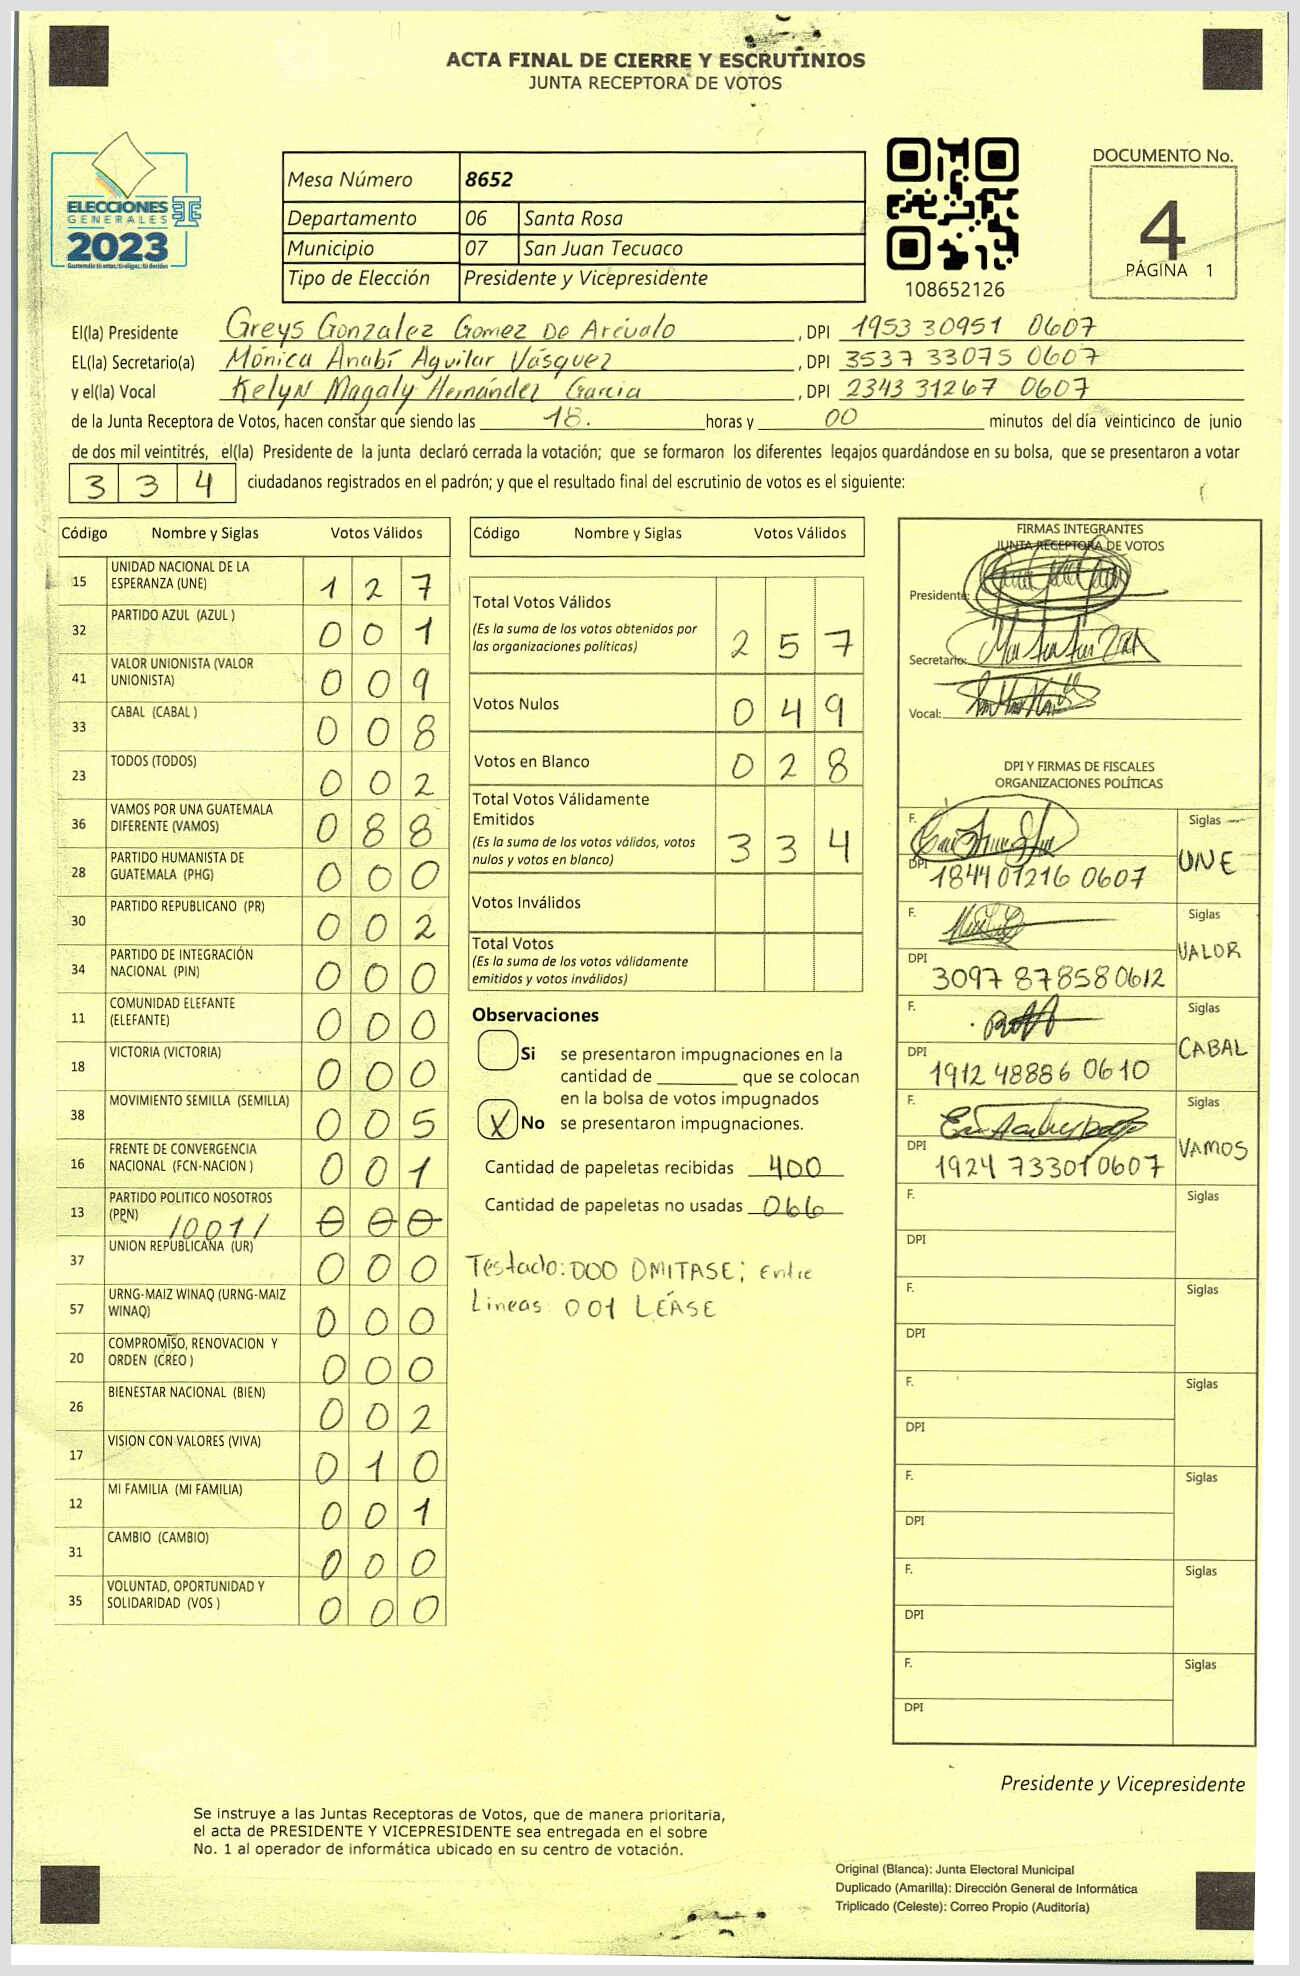 ACTA FINAL DE CIERRE Y ESCRUTINIOS
JUNTA RECEPTORA DE VOTOS
ELECCIONES
GENERALES
2023
Mesa Número 8652
Departamento 06 Santa Rosa
Municipio 07 San Juan Tecuaco
Tipo de Elección Presidente y Vicepresidente
108652126
DOCUMENTO No.
4
PÁGINA 1
El(la) Presidente Greys Gonzalez Gomez De Arévalo , DPI 1953 30951 0607
EL(la) Secretario(a) Mónica Anabí Aguilar Vásquez , DPI 3537 33075 0607
y el(la) Vocal Kelyn Magaly Hernández Garcia , DPI 2343 31267 0607
de la Junta Receptora de Votos, hacen constar que siendo las 18. horas y 00 minutos del día veinticinco de junio
de dos mil veintitrés, el(la) Presidente de la junta declaró cerrada la votación; que se formaron los diferentes legajos guardándose en su bolsa, que se presentaron a votar
3 3 4 ciudadanos registrados en el padrón; y que el resultado final del escrutinio de votos es el siguiente:
Código Nombre y Siglas Votos Válidos
15 UNIDAD NACIONAL DE LA
ESPERANZA (UNE) 1 2 7
32 PARTIDO AZUL (AZUL ) 0 0 1
41 VALOR UNIONISTA (VALOR
UNIONISTA) 0 0 9
33 CABAL (CABAL ) 0 0 8
23 TODOS (TODOS) 0 0 2
36 VAMOS POR UNA GUATEMALA
DIFERENTE (VAMOS) 0 8 8
28 PARTIDO HUMANISTA DE
GUATEMALA (PHG) 0 0 0
30 PARTIDO REPUBLICANO (PR) 0 0 2
34 PARTIDO DE INTEGRACIÓN
NACIONAL (PIN) 0 0 0
11 COMUNIDAD ELEFANTE
(ELEFANTE) 0 0 0
18 VICTORIA (VICTORIA) 0 0 0
38 MOVIMIENTO SEMILLA (SEMILLA) 0 0 5
16 FRENTE DE CONVERGENCIA
NACIONAL (FCN-NACION ) 0 0 1
13 PARTIDO POLITICO NOSOTROS
(PPN) /001/ 0 0 0
37 UNION REPUBLICANA (UR) 0 0 0
57 URNG-MAIZ WINAQ (URNG-MAIZ
WINAQ) 0 0 0
20 COMPROMISO, RENOVACION Y
ORDEN (CREO ) 0 0 0
26 BIENESTAR NACIONAL (BIEN) 0 0 2
17 VISION CON VALORES (VIVA) 0 1 0
12 MI FAMILIA (MI FAMILIA) 0 0 1
31 CAMBIO (CAMBIO) 0 0 0
35 VOLUNTAD, OPORTUNIDAD Y
SOLIDARIDAD (VOS ) 0 0 0
Código Nombre y Siglas Votos Válidos
Total Votos Válidos
(Es la suma de los votos obtenidos por
las organizaciones políticas) 2 5 7
Votos Nulos 0 4 9
Votos en Blanco 0 2 8
Total Votos Válidamente
Emitidos
(Es la suma de los votos válidos, votos
nulos y votos en blanco) 3 3 4
Votos Inválidos
Total Votos
(Es la suma de los votos válidamente
emitidos y votos inválidos)
Observaciones
Si se presentaron impugnaciones en la
cantidad de ________ que se colocan
en la bolsa de votos impugnados
X No se presentaron impugnaciones.
Cantidad de papeletas recibidas 400
Cantidad de papeletas no usadas 066
Testado: 000 OMITASE; Entre
Lineas: 001 LÉASE
FIRMAS INTEGRANTES
JUNTA RECEPTORA DE VOTOS
Presidente:
Secretario:
Vocal:
DPI Y FIRMAS DE FISCALES
ORGANIZACIONES POLÍTICAS
F. Siglas
DPI 1844 01216 0607 UNE
F. Siglas
DPI 3097 87858 0612 VALOR
F. Siglas
DPI 1912 48886 0610 CABAL
F. Siglas
DPI 1924 73301 0607 VAMOS
F. Siglas
DPI
F. Siglas
DPI
F. Siglas
DPI
F. Siglas
DPI
F. Siglas
DPI
F. Siglas
DPI
Presidente y Vicepresidente
Se instruye a las Juntas Receptoras de Votos, que de manera prioritaria,
el acta de PRESIDENTE Y VICEPRESIDENTE sea entregada en el sobre
No. 1 al operador de informática ubicado en su centro de votación.
Original (Blanca): Junta Electoral Municipal
Duplicado (Amarilla): Dirección General de Informática
Triplicado (Celeste): Correo Propio (Auditoría)